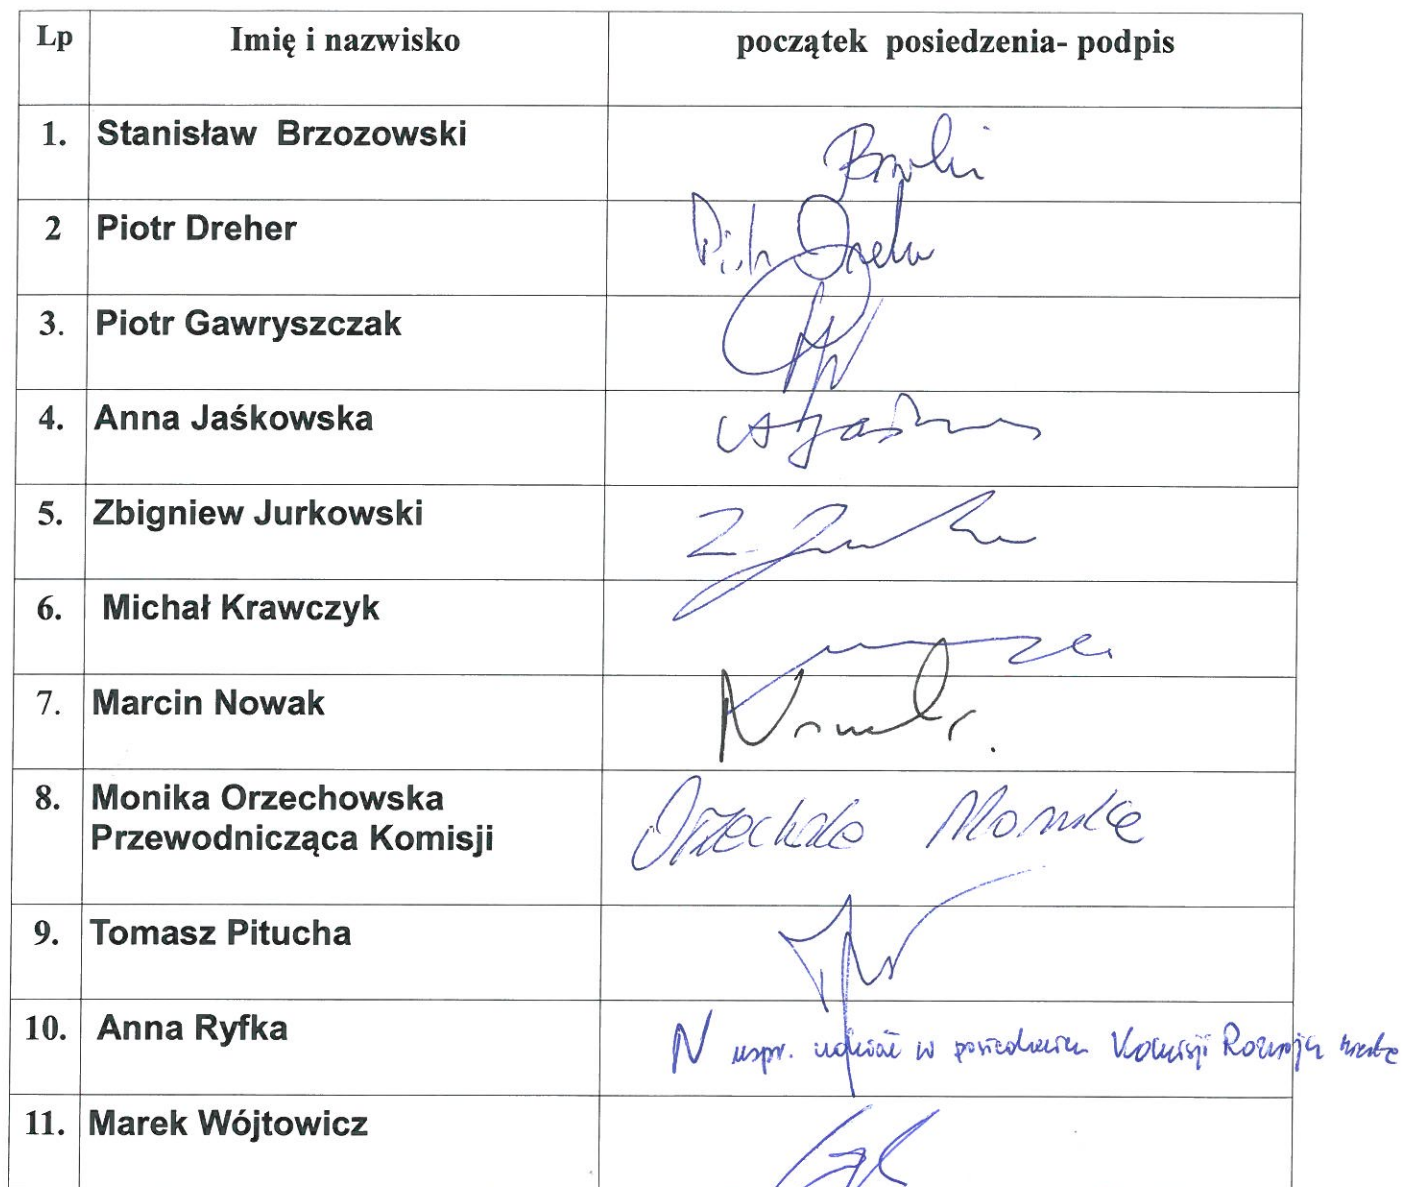 Lp Imię i nazwisko początek posiedzenia- podpis
1. Stanisław Brzozowski
2 Piotr Dreher Piotr Dreher
3. Piotr Gawryszczak
4. Anna Jaśkowska
5. Zbigniew Jurkowski
6. Michał Krawczyk
7. Marcin Nowak
8. Monika Orzechowska
Przewodnicząca Komisji
9. Tomasz Pitucha
10. Anna Ryfka N uspr. udział w posiedzeniu Komisji Rozwoju Miasta
11. Marek Wójtowicz